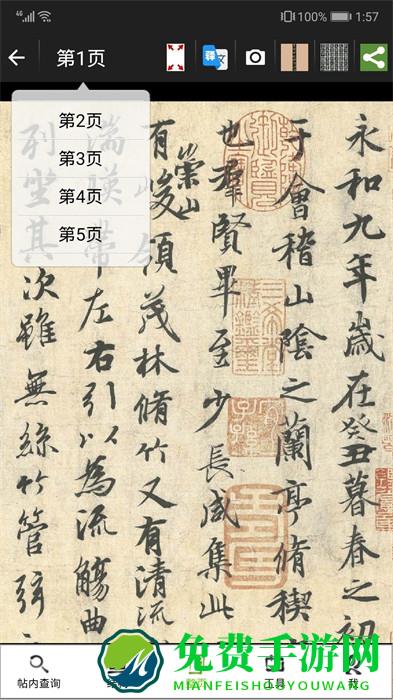 4G 100% 1:57
第1页
第2页
第3页
第4页
第5页
永和九年歲在癸丑暮春之初
于會稽山陰之蘭亭脩稧
也羣賢畢至少長咸集此
有崇山峻領茂林脩竹又有清流
湍暎帶左右引以為流觴曲
列坐其次雖無絲竹管弦
帖内查询
工具
免费手游网
MIANFEISHOUYOUWANG